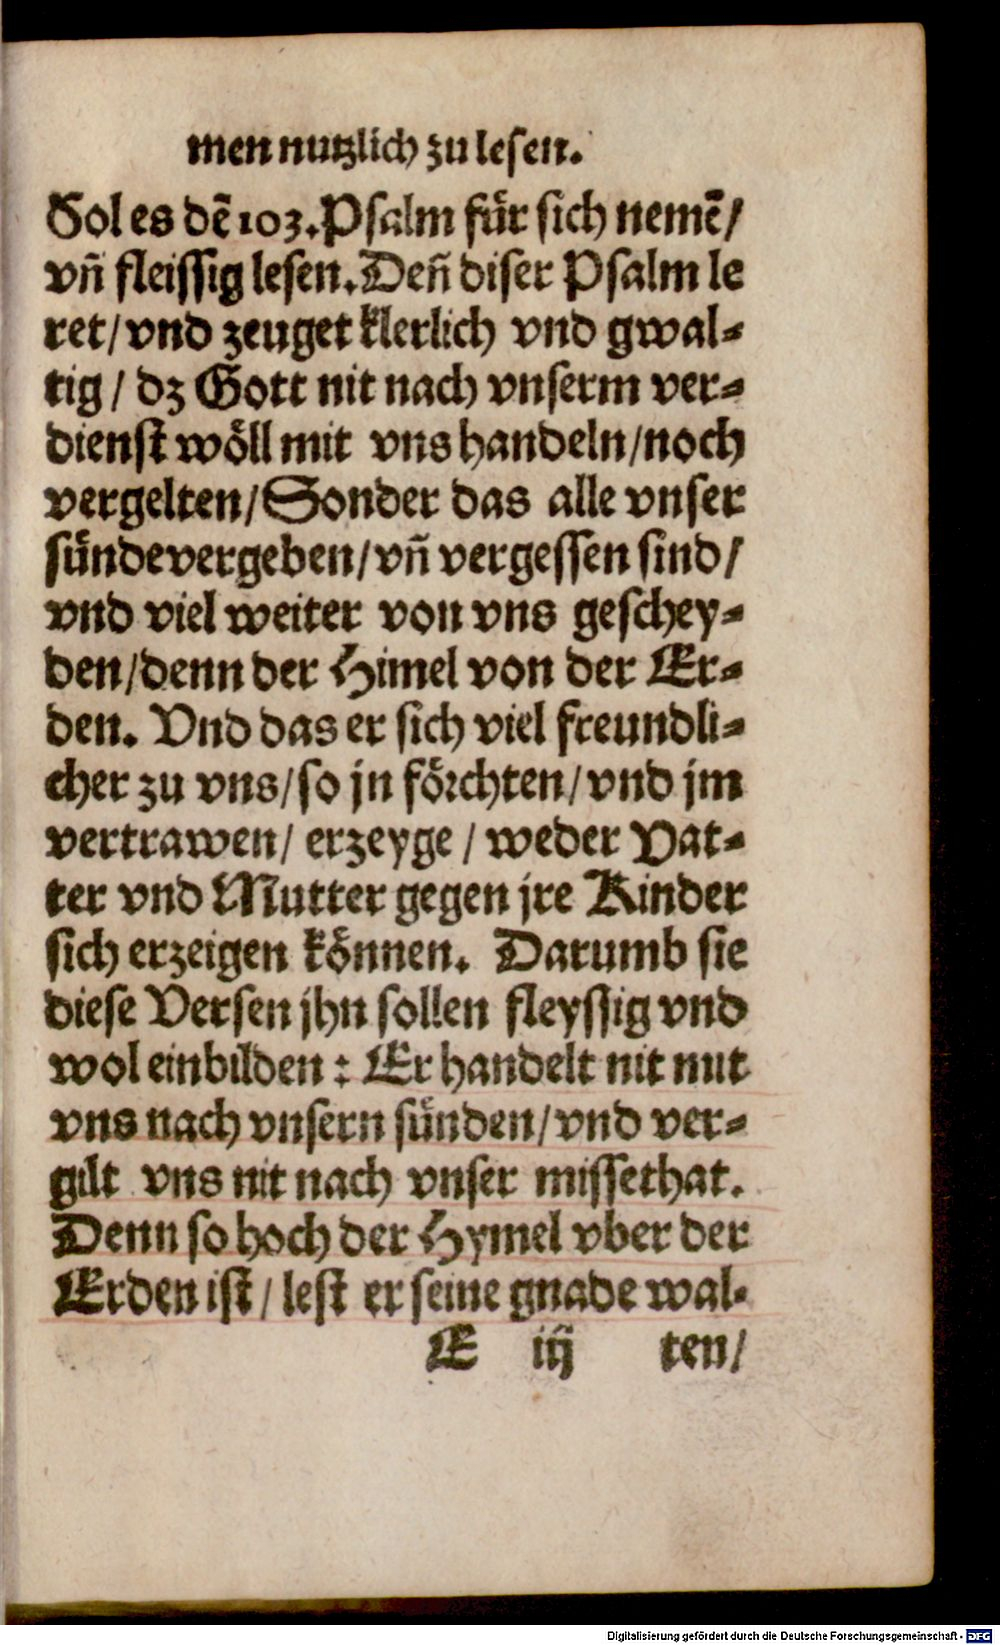 men nutzlich zu lesen.
Sol es dē 103. Psalm für sich nemē/
vn̄ fleissig lesen. Den̄ diser Psalm le
ret/ vnd zeuget klerlich vnd gwal⸗
tig/ dz Gott nit nach vnserm ver⸗
dienst wöll mit vns handeln/ noch
vergelten/ Sonder das alle vnser
sünde vergeben/ vn̄ vergessen sind/
vnd viel weiter von vns geschey⸗
den/ denn der Himel von der Er⸗
den. Vnd das er sich viel freundli⸗
cher zu vns/ so jn förchten/ vnd jm
vertrawen/ erzeyge/ weder Vat⸗
ter vnd Mutter gegen jre Kinder
sich erzeigen können. Darumb sie
diese Versen jhn sollen fleyssig vnd
wol einbilden: Er handelt nit mit
vns nach vnsern sünden/ vnd ver⸗
gilt vns nit nach vnser missethat.
Denn so hoch der Hymel vber der
Erden ist/ lest er seine gnade wal⸗
E iij ten/
Digitalisierung gefördert durch die Deutsche Forschungsgemeinschaft - DFG